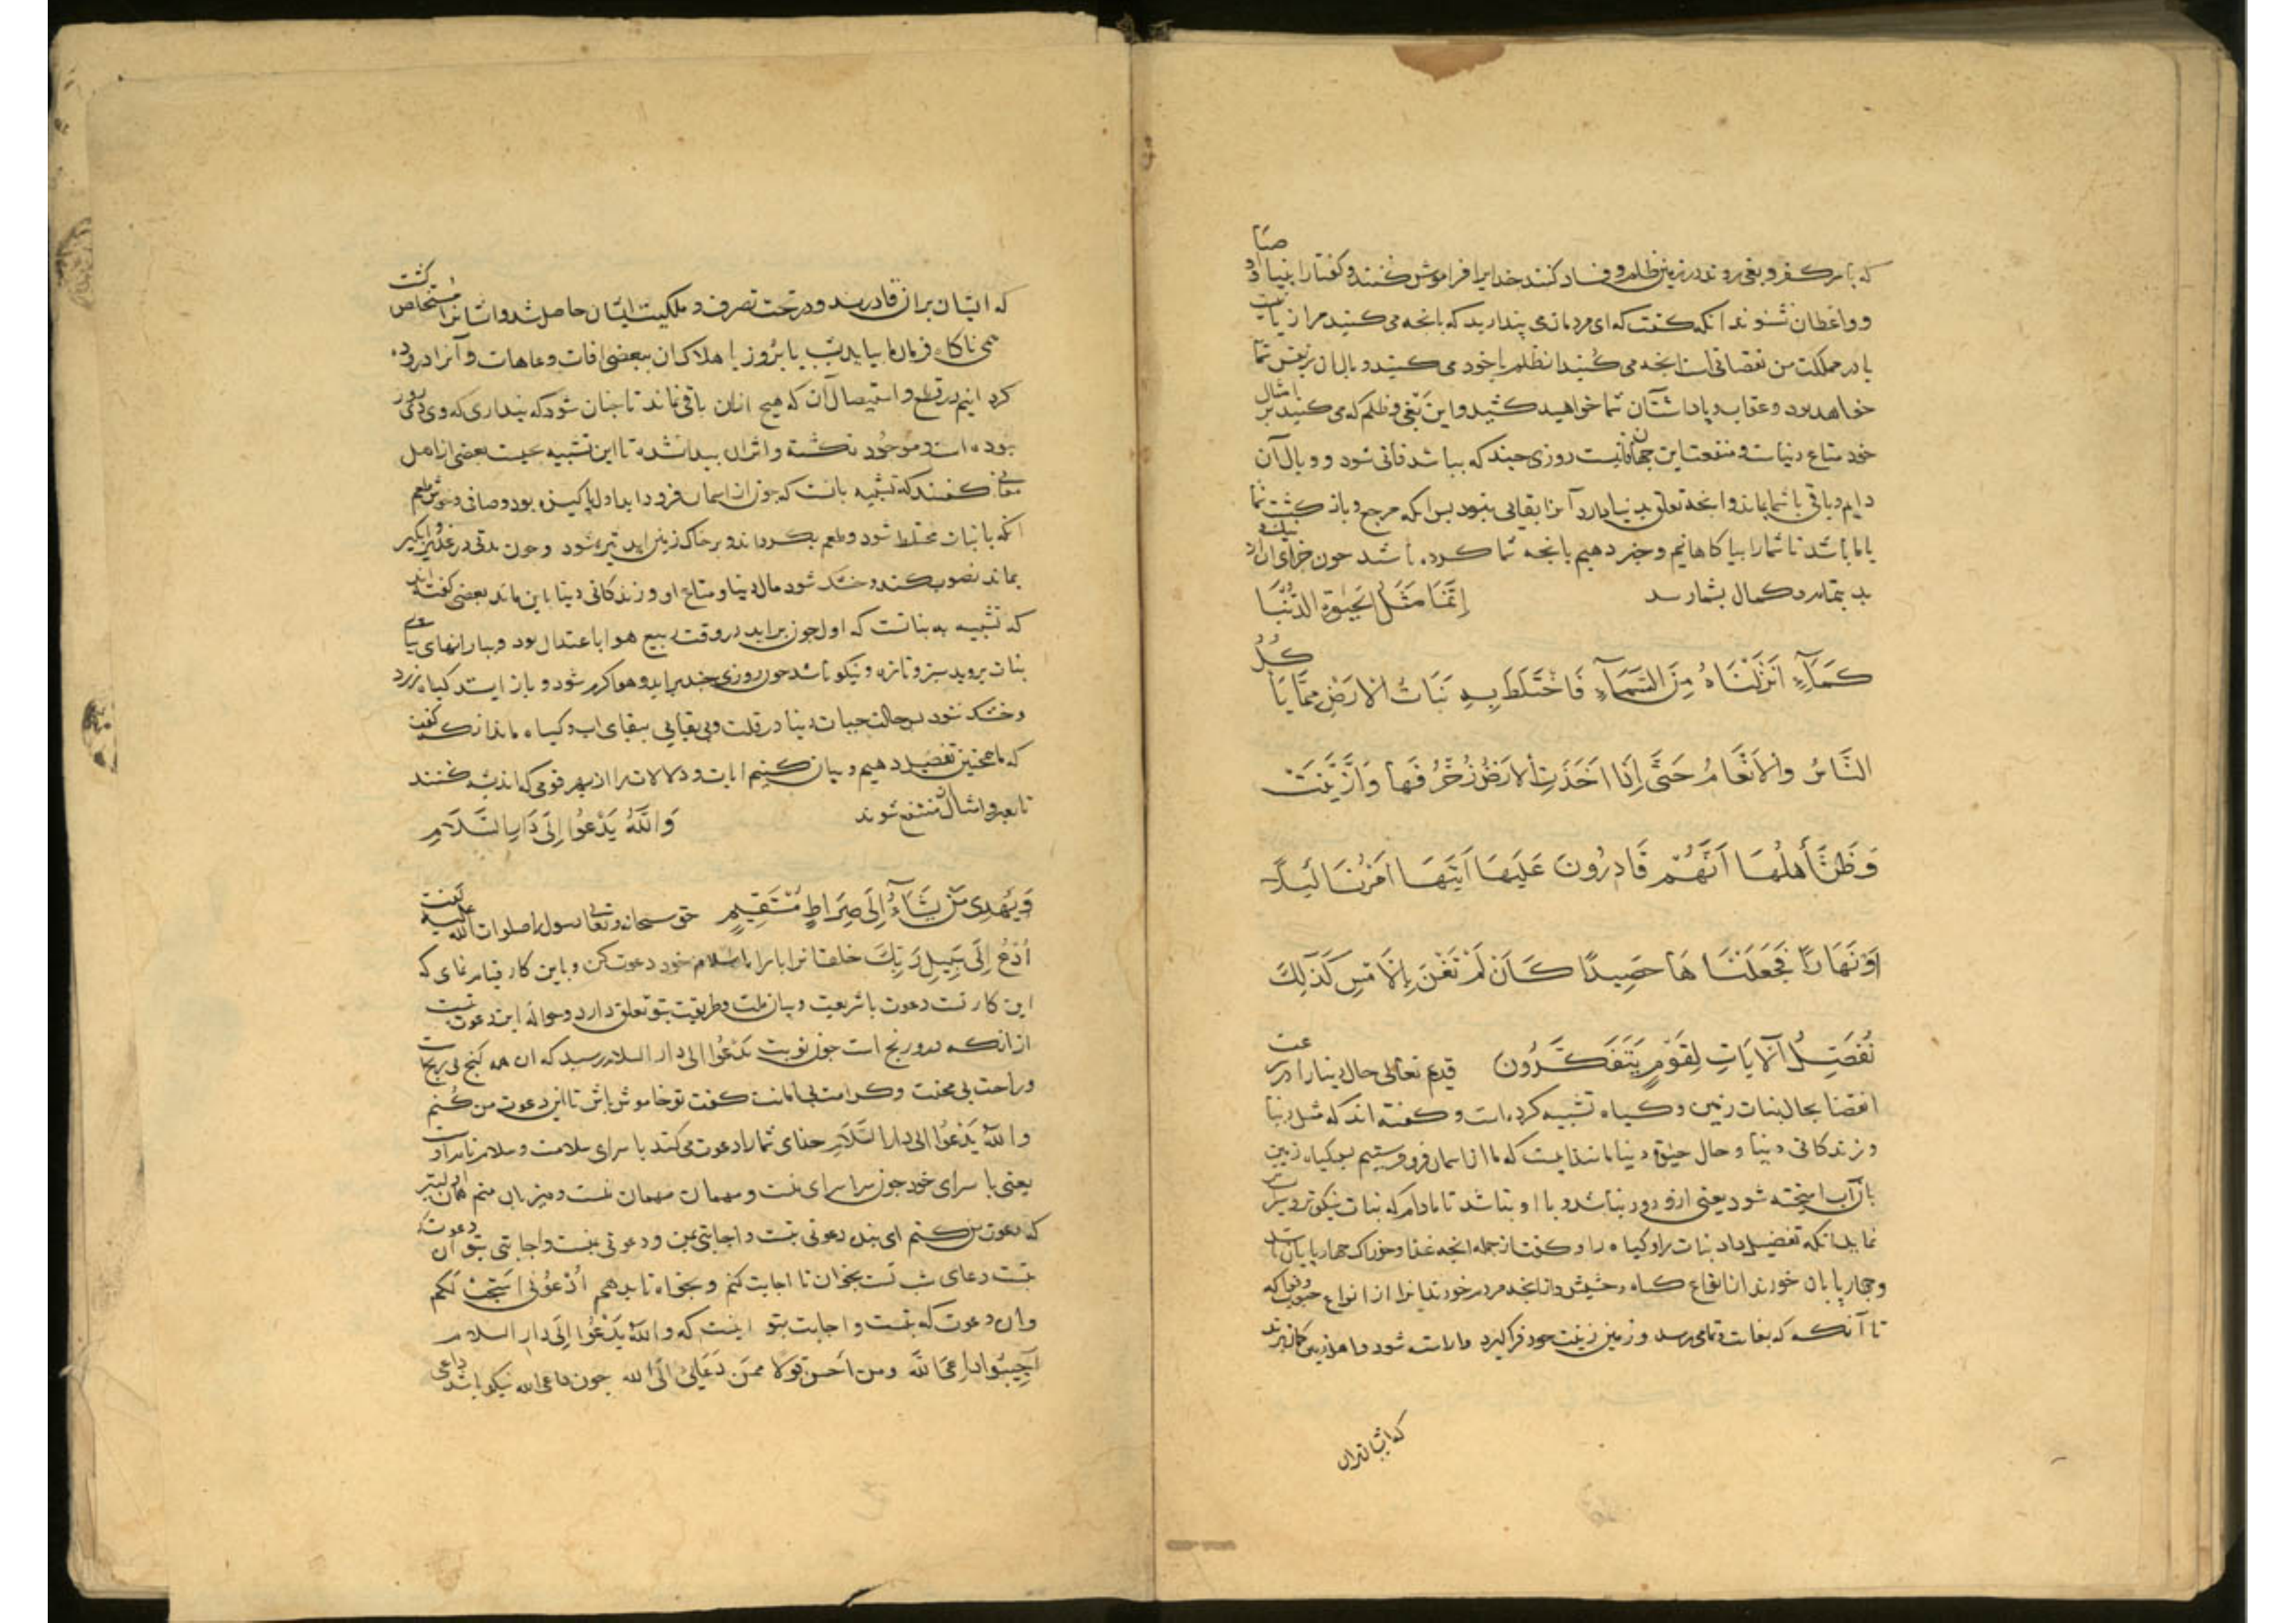 که با سر کفر و بغی روند در زمین ظلم و فساد کنند خدایرا فراموش کنند و گفتار انبیا و اوصیا
و واعظان نشنوند آنکه گفت که ای مردمان می پندارید که بانچه می کنید مرا زیانیست
یا در مملکت من نقصانی است انچه می کنید ان ظلم با خود می کنید و بال ان بر نفس شما
خواهد بود و عقاب و پاداش آن شما خواهید کشید و این بغی و ظلم که می کنید بر امثال
خود متاع دنیاست و منفعت این جهانیست روزی چند که بباشد فانی شود و وبال آن
دایم و باقی با شما بماند و انچه تعلق بدنیا دارد آنرا بقایی نبود پس انکه مرجع و بازگشت شما
با ما باشد تا شما را بیاگاهانیم و خبر دهیم بانچه شما کرده باشید چون جزای ان از نیک و
بد بتمام و کمال بشما رسد اِنَّمَا مَثَلُ الحَیٰوةِ الدُّنْیَا
کَمَآءٍ اَنْزَلْنَاهُ مِنَ السَّمَآءِ فَاخْتَلَطَ بِهِ نَبَاتُ الاَرْضِ مِمَّا یَأکُلُ
النَّاسُ وَالاَنْعَامُ حَتّٰی اِذَا اَخَذَتِ الاَرْضُ زُخْرُفَهَا وَازَّیَّنَتْ
وَظَنَّ أَهْلُهَا اَنَّهُمْ قَادِرُونَ عَلَیْهَا اَتَیهَا اَمْرُنَا لَیْلًا
اَوْ نَهَارًا فَجَعَلْنَاهَا حَصِیدًا کَاَنْ لَمْ تَغْنَ بِالاَمْسِ کَذٰلِكَ
نُفَصِّلُ الآیَاتِ لِقَوْمٍ یَتَفَکَّرُونَ قدیم تعالی حال دنیا را در سرعت
انقضا بحال نبات زمین و گیاه تشبیه کرده است و گفته اند که مثل دنیا
و زندگانی دنیا و حال حیٰوة دنیا مانند ابیست که ما از اسمان فرو فرستیم پس گیاه زمین
بان آب امیخته شود یعنی ازو دور نباشد و با او بباشد تا مادام که نبات نیکوتر و سبزتر
نماید انکه تفضیل داد نبات را و گیاه را و گفت از جمله انچه غذا و خوراک چهارپایان باشد
و چهارپایان خورند از انواع گیاه و حشیش و از انچه مردم خورند انرا از انواع حبوب و فواکه
تا آنکه که بغایت و تمامی رسد و زمین زینت خود فراگیرد و اراسته شود و اهل زمین گمان برند
که ایشان بران
که ایشان بران قادرند و در تحت تصرف و ملکیت ایشان حاصل شد و ایشانرا مستخلص گشت
می ناگاه فرمان ما بیاید بشب یا بروز با هلاک ان ببعضی افات و عاهات و آنرا دروده
کردانیم در قطع و استیصال آن که هیچ ازان باقی نماند تا چنان شود که پنداری که وی دی روز
بوده است و موجود نگشته و اثر ان پیدا نشده تا این تشبیه بچیست بعضی از اهل
معانی گفتند که تشبیه بابست که چون از اسمان فرود اید اول پاکیزه بود و صافی و خوش طعم
انکه با نبات مختلط شود و طعم بگرداند و بر خاک زمین اید تیره شود و چون مدتی در غدیر و ابگیر
بماند نضوب کند و خشک شود مال دنیا و متاع او و زندگانی دنیا باین ماند بعضی گفته اند
که تشبیه به نباتست که اول چون براید در وقت ربیع هوا با اعتدال بود و بارانهای پیاپی
نبات بروید سبز و تازه و نیکو باشد چون روزی چند براید و هوا گرم شود و باران ایستد گیاه زرد
و خشک شود پس حالت حیات دنیا در قلت و بی بقایی ببقای اب و گیاه ماند انکه گفت
که ما همچنین تفصیل دهیم و بیان کنیم ایات و دلالات را از بهر قومی که اندیشه کنند
تا بعبر و امثال ان منتفع شوند وَاللّٰهُ یَدْعُوا اِلٰی دَارِ السَّلَامِ
وَیَهْدِی مَنْ یَشَآءُ اِلٰی صِرَاطٍ مُسْتَقِیمٍ حق سبحانه و تعالی رسول را صلوات الله علیه گفت
اُدْعُ اِلٰی سَبِیلِ رَبِّكَ خلقان را با راه اسلام خود دعوت کن و باین کار قیام نمای که
این کار تست دعوت با شریعت و بیان ملت و طریقت بتو تعلق دارد و حواله این دعوت تست
ازانکه درو رنج است چون نوبت یَدْعُوا الی دار السلام رسید که ان همه گنج بی رنج است
و راحت بی محنت و کرامت بی اهانت گفت تو خاموش باش تا این دعوت من کنم
والله یَدْعُوا الی دار السَّلَام خدای شما را دعوت می کند با سرای سلامت و سلام نام اوست
یعنی با سرای خود چون سرا سرای منست و مهمان مهمان منست و میزبان منم همان اولیتر
که دعوت من کنم ای بنده دعوتی بتست و اجابتی بمن و دعوتی بمنست و اجابتی بتو ان دعوت که
بتست دعای شب تست بخوان تا اجابت کنم و بخواه تا بدهم اُدْعُونِی اَسْتَجِبْ لَکُم
وان دعوت که بمنست و اجابت بتو اینست که والله یَدْعُوا اِلٰی دار السلام
اَجِیبُوا داعِیَ اللّٰه ومن اَحسن قولا ممن دَعَا اِلَی الله چون داعی الله نیکو باشد داعی